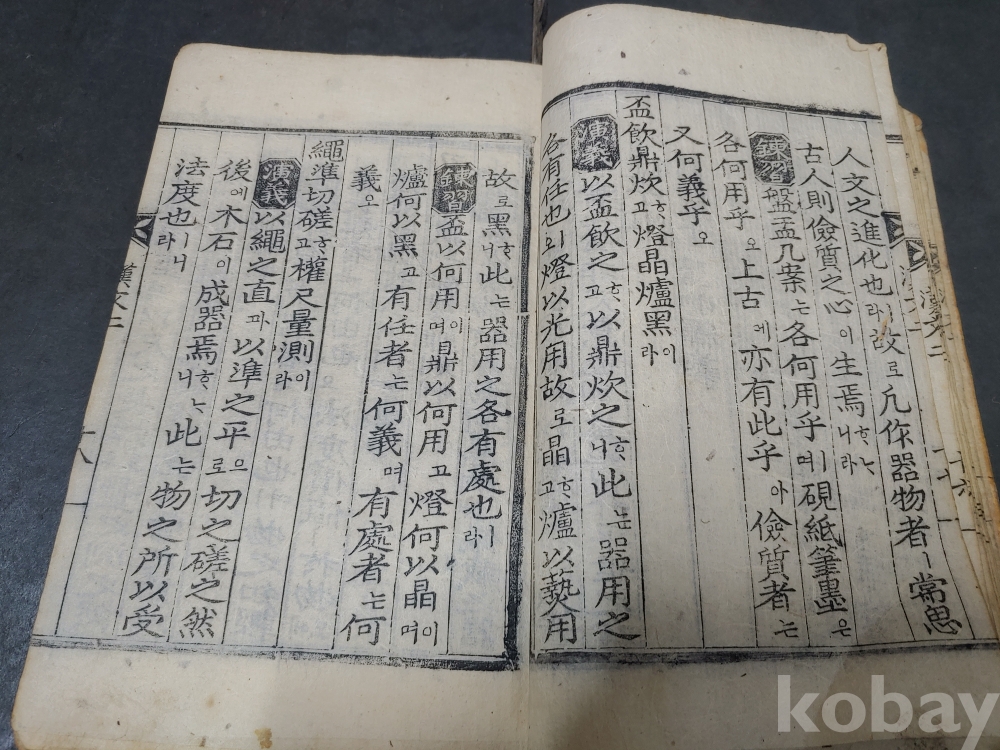 人文之進化也라故로凡作器物者ㅣ常思
古人則儉質之心이生焉ᄒᆞᄂᆞ니라
鍊習盤盂几案는各何用乎ㅣ며硯紙筆墨은
各何用乎오上古에亦有此乎아儉質者는
又何義乎오
盃飮鼎炊ᄒᆞ고燈晶爐黑이라
演義以盃飮之ᄒᆞ고以鼎炊之ᄒᆞ니此는器用之
各有任也ㅣ오燈以光用故로晶ᄒᆞ고爐以爇用
故로黑ᄒᆞ니此는器用之各有處也ㅣ라
鍊習盃以何用이며鼎以何用고燈何以晶이며
爐何以黑고有任者는何義며有處者는何
義오
繩準切磋ᄒᆞ고權尺量測이라
演義以繩之直과以準之平으로切之磋之然
後에木石이成器焉ᄒᆞᄂᆞ니此는物之所以受
法度也ㅣ니라
漢文二 十八
kobay